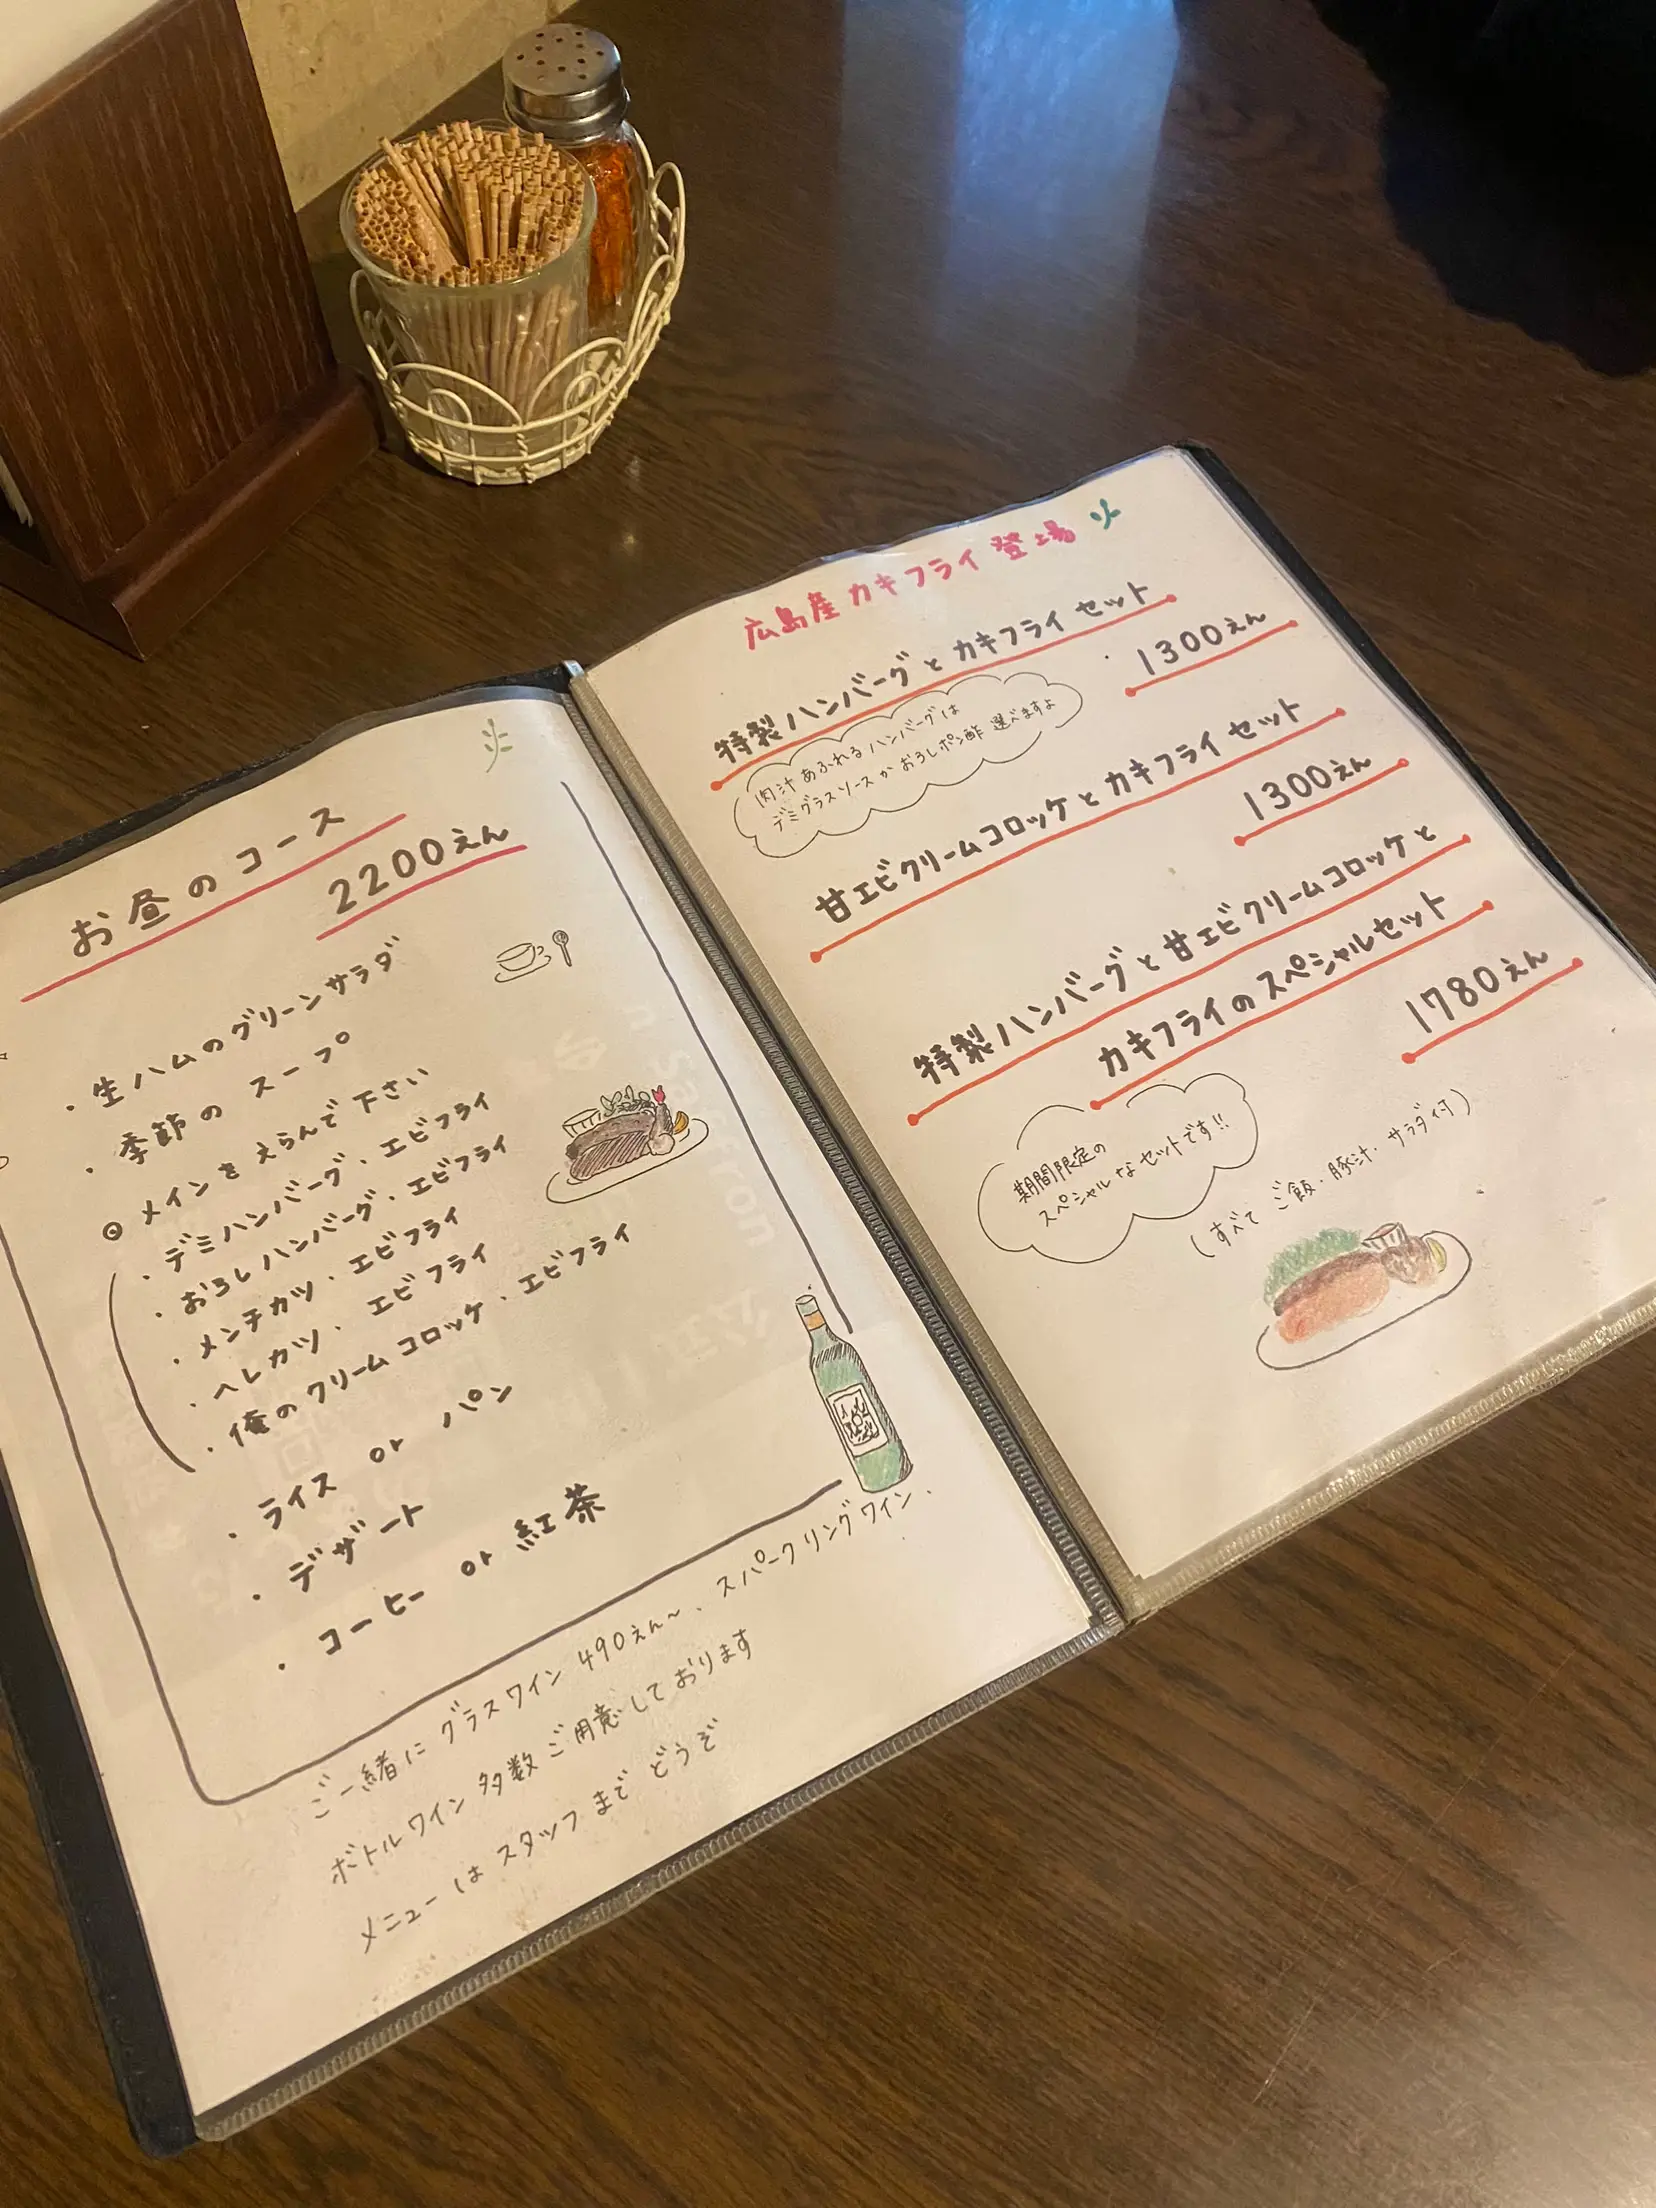 お昼のコース
2200えん
・生ハムのグリーンサラダ
・季節の スープ
◎メインを えらんで下さい
・デミハンバーグ、エビフライ
・おろしハンバーグ、エビフライ
・メンチカツ、エビフライ
・ヘレカツ、エビフライ
・俺のクリームコロッケ、エビフライ
・ライス or パン
・デザート
・コーヒー or 紅茶
ご一緒に グラスワイン 490えん〜、スパークリングワイン、
ボトルワイン 多数ご用意しております
メニューは スタッフまで どうぞ
広島産 カキフライ 登場
特製ハンバーグと カキフライ セット
1300えん
肉汁あふれるハンバーグは
デミグラスソースか おろしポン酢 選べますよ
甘エビクリームコロッケと カキフライ セット
1300えん
特製ハンバーグと 甘エビクリームコロッケと
カキフライの スペシャルセット
1780えん
期間限定の
スペシャルなセットです!!
(すべて ご飯・豚汁・サラダ付)